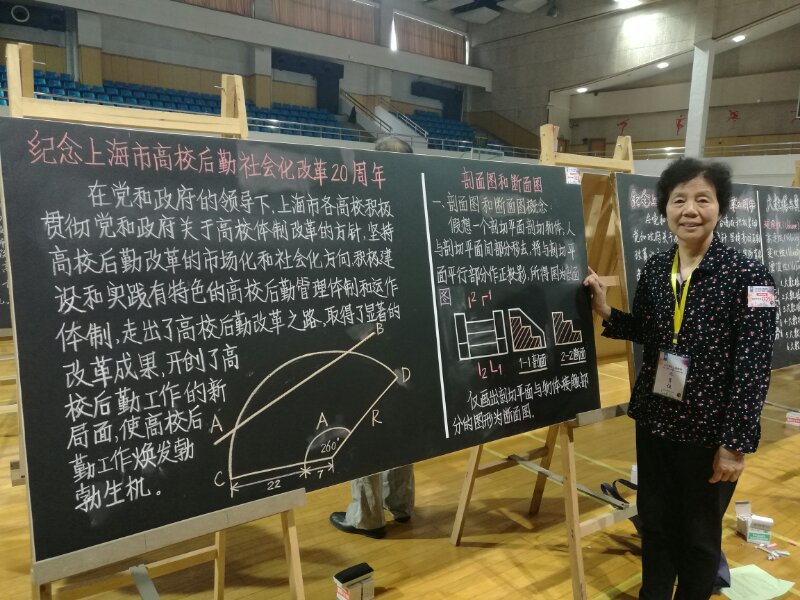 纪念上海市高校后勤社会化改革20周年
在党和政府的领导下,上海市各高校积极
贯彻党和政府关于高校体制改革的方针,坚持
高校后勤改革的市场化和社会化方向,积极建
设和实践有特色的高校后勤管理体制和运作
体制,走出了高校后勤改革之路,取得了显著的
改革成果,开创了高
校后勤工作的新
局面,使高校后
勤工作焕发勃
勃生机。
A
B
C
D
A
R
260°
22
7
剖面图和断面图
一、剖面图和断面图概念:
假想一个剖切平面剖切物体,人
与剖切平面间部分移去,将与剖切平
面平行部分作正投影,所得图为剖面
图
12 r1
12 L1
1-1剖面
2-2断面
仅画出剖切平面与物体接触部
分的图形为断面图.